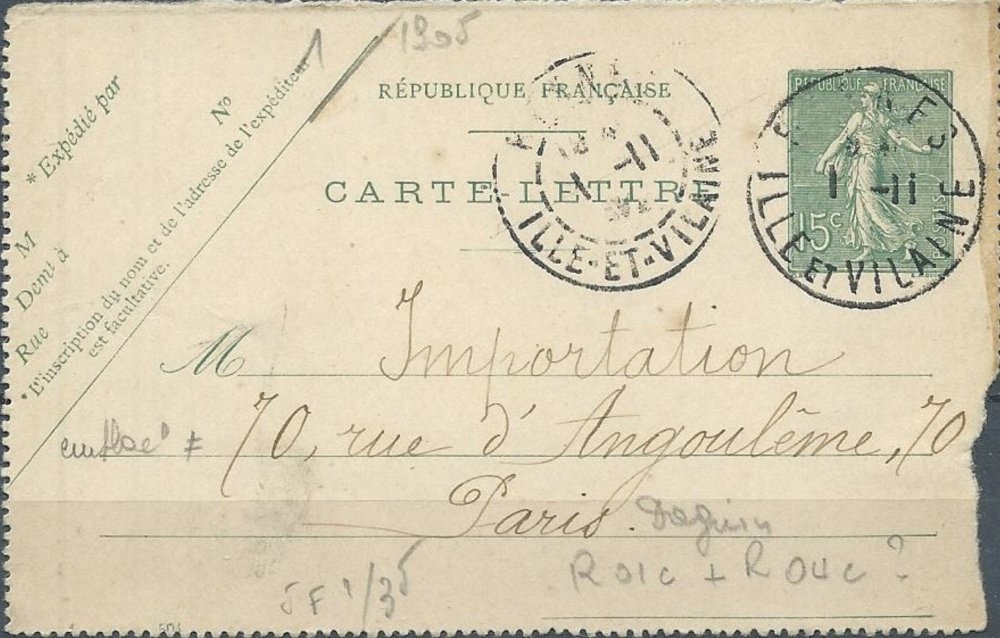 1
1905
RÉPUBLIQUE FRANÇAISE
CARTE-LETTRE
* Expédié par
M
Demt à
Rue
No
* L'inscription du nom et de l'adresse de l'expéditeur
est facultative.
1 -11
ILLE-ET-VILAINE
RÉPUBLIQUE FRANÇAISE
15c
POSTES
1 -11
ILLE ET VILAINE
M Importation
70, rue d'Angoulême, 70
Paris.
Daguin
R01c + R04c ?
5F 1/35